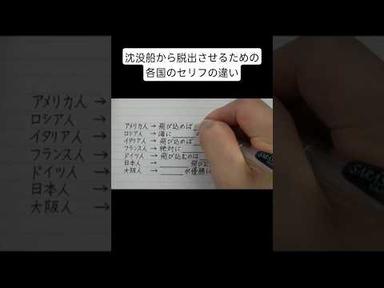 沈没船から脱出させるための
各国のセリフの違い
アメリカ人 → 飛び込めば
ロシア人 → 海に
イタリア人 → 飛び込めば
フランス人 → 絶対に
ドイツ人 → 飛び込むのは
日本人 → 飛び込
大阪人 → が優勝し
アメリカ人 →
ロシア人 →
イタリア人 →
フランス人 →
ドイツ人 →
日本人 →
大阪人 →
SARASA